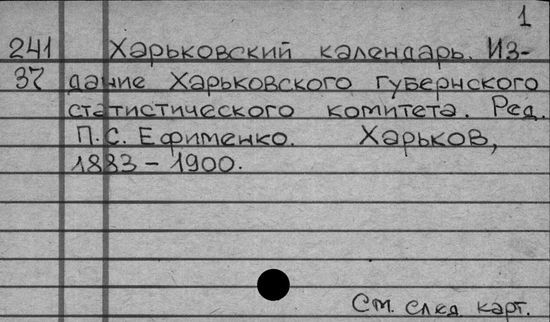 1
241 Харьковский календарь. Из-
37 дание Харьковского губернского
статистического комитета. Ред.
П.С. Ефименко. Харьков,
1883 – 1900.
См. след. карт.